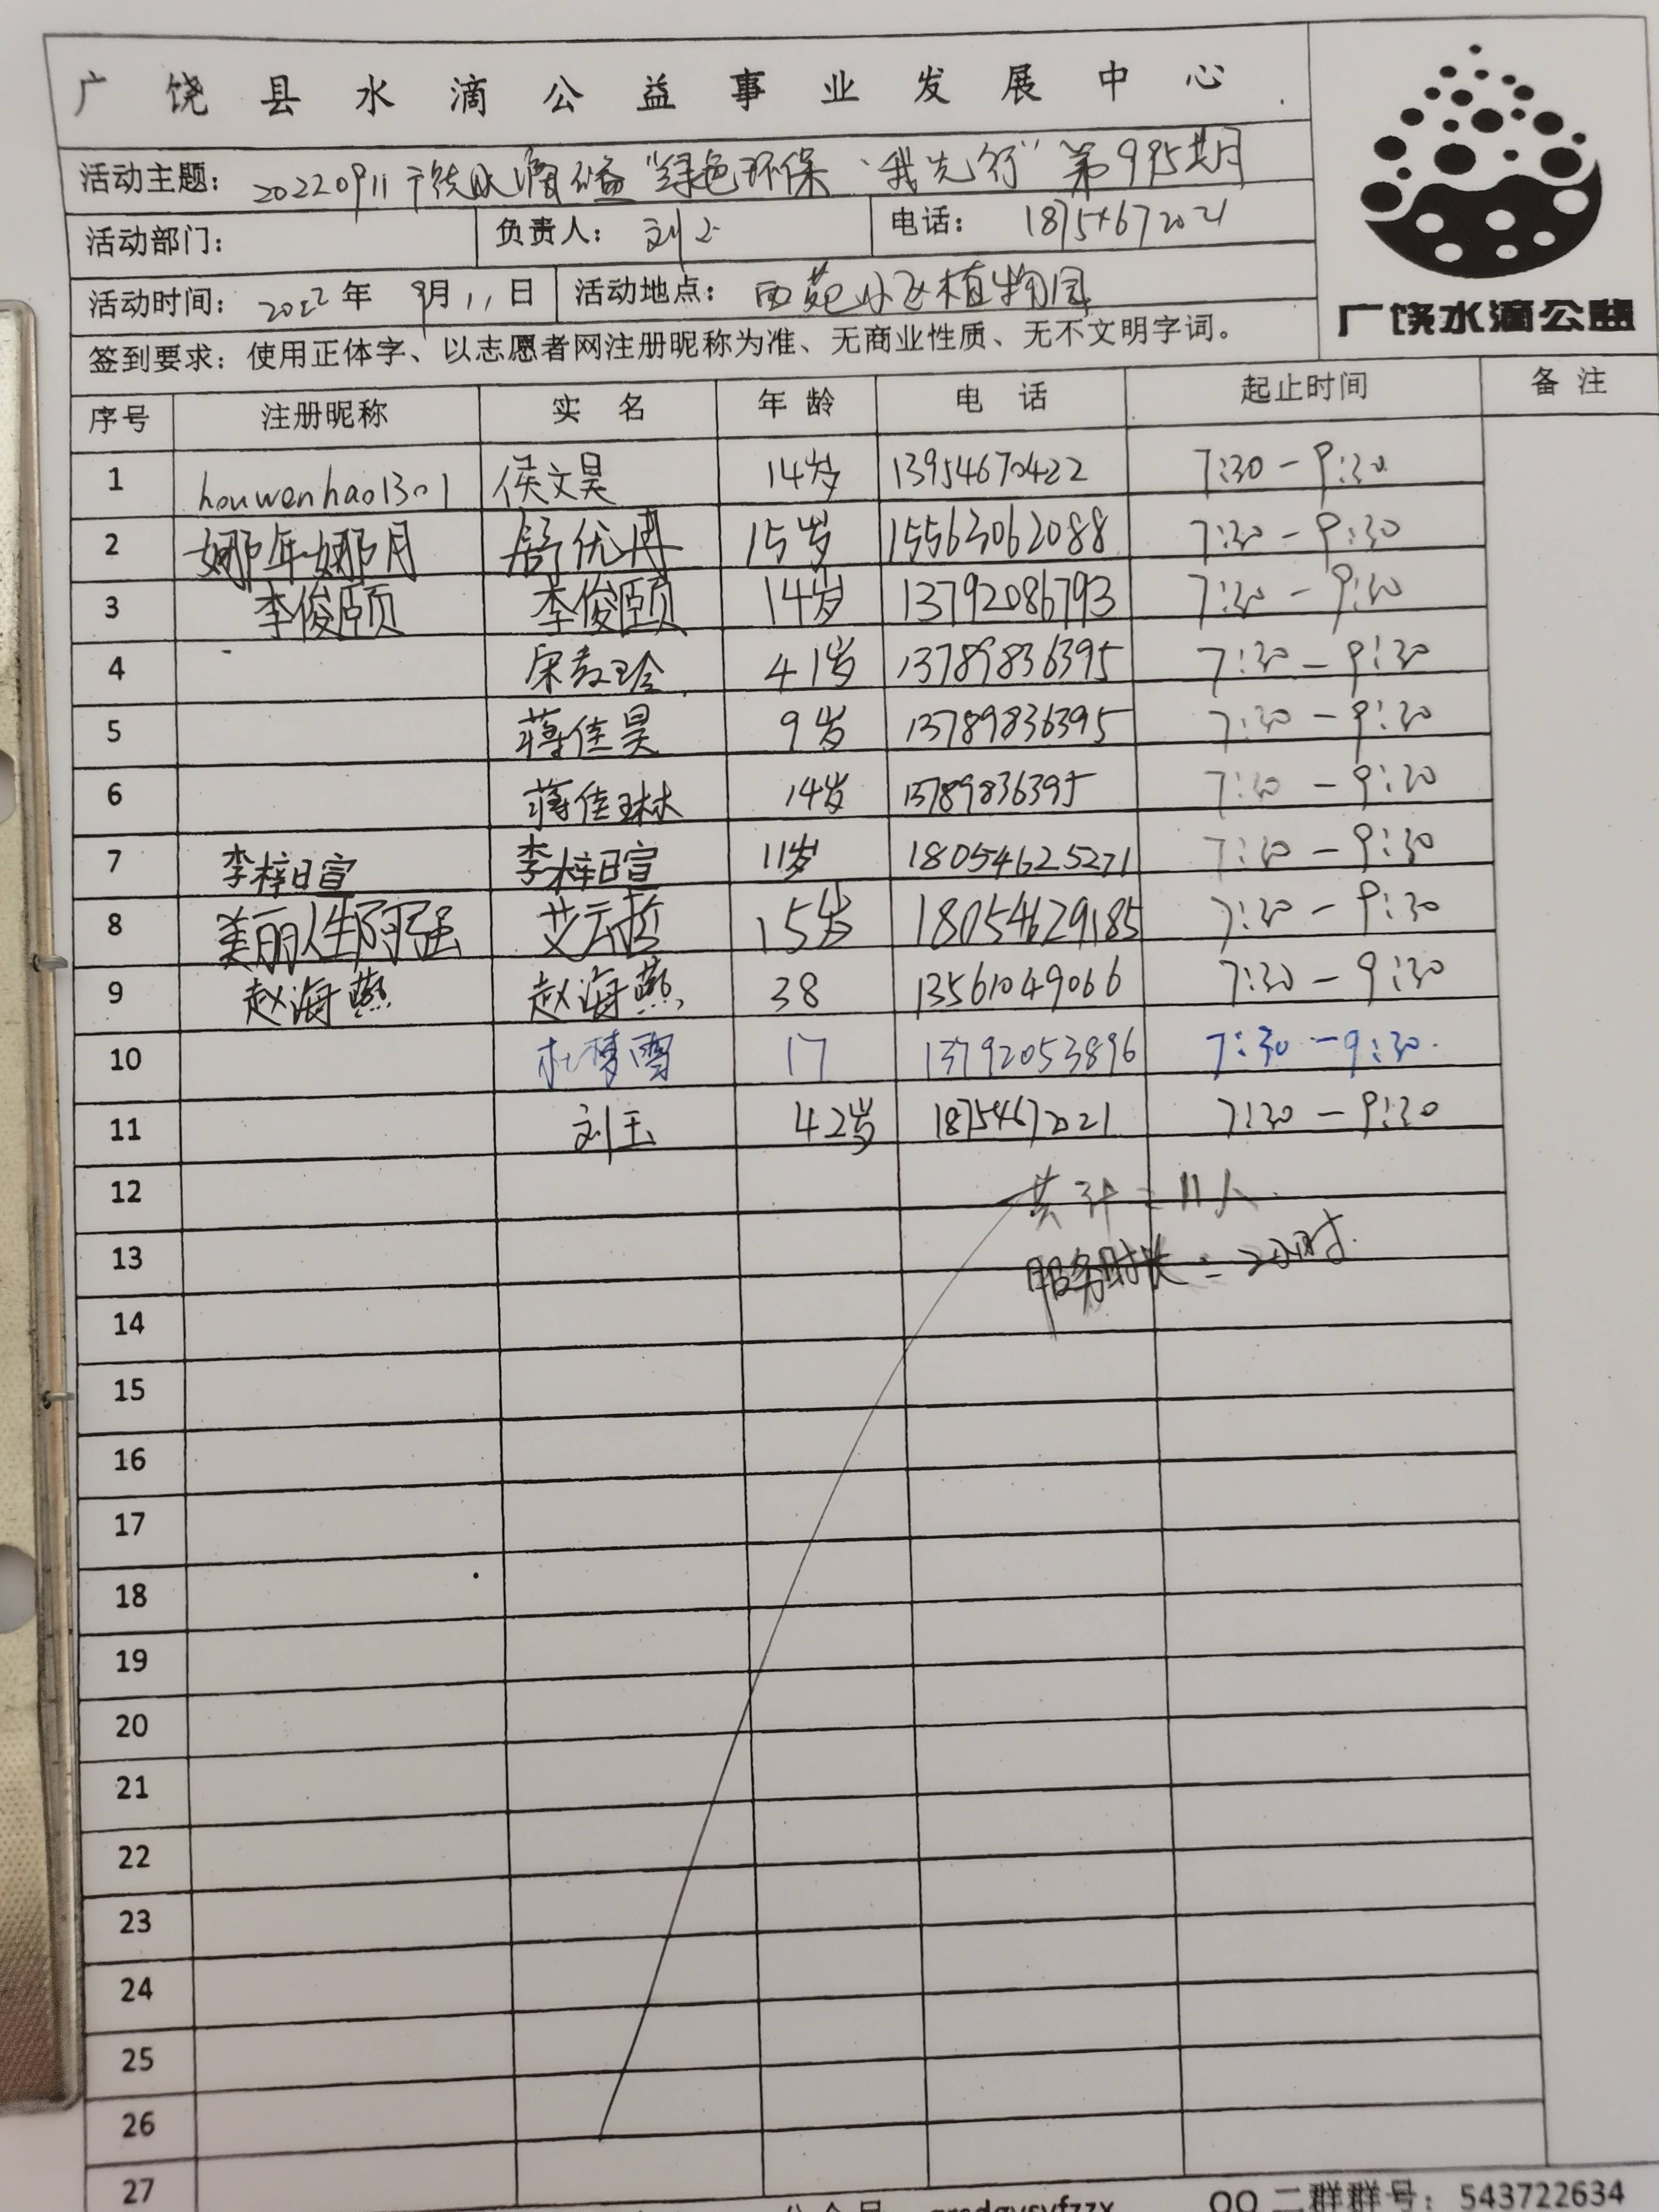 广饶县水滴公益事业发展中心
活动主题: 20220911广饶水滴公益"绿色环保·我先行"第995期
活动部门: 负责人: 刘玉 电话: 18754672021
活动时间: 2022年9月11日 活动地点: 西苑小区植物园
签到要求: 使用正体字、以志愿者网注册昵称为准、无商业性质、无不文明字词。
广饶水滴公益
序号 注册昵称 实名 年龄 电话 起止时间 备注
1 houwenhao1301 侯文昊 14岁 13954670422 7:30-9:30
2 娜年娜月 舒优冉 15岁 15563062088 7:30-9:30
3 李俊颐 李俊颐 14岁 13792086793 7:30-9:30
4 41岁 13789836395 7:30-9:30
5 蒋佳昊 9岁 13789836395 7:30-9:30
6 蒋佳琳 14岁 13789836395 7:30-9:30
7 李梓暄 李梓暄 11岁 18054625271 7:30-9:30
8 美丽人生阿强 艾云哲 15岁 18054629185 7:30-9:30
9 赵海燕 赵海燕 38 13561049066 7:30-9:30
10 杜梦雪 17 13792053896 7:30-9:30.
11 刘玉 42岁 18754672021 7:30-9:30
12 共计: 11人
13 服务时长: 2小时.
14
15
16
17
18
19
20
21
22
23
24
25
26
27
QQ二群群号: 543722634